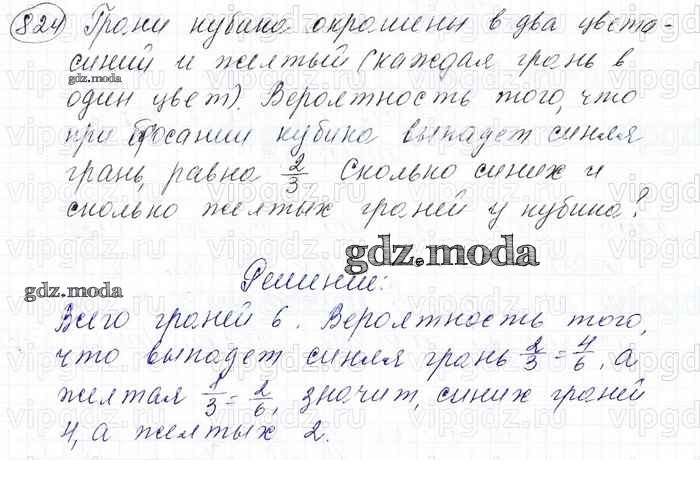 824) Грани кубика окрашены в два цвета -
синий и желтый (каждая грань в
gdz.moda
один цвет). Вероятность того, что
при бросании кубика выпадет синяя
грань, равна 2/3 Сколько синих и
сколько желтых граней у кубика?
gdz.moda
Решение:
gdz.moda
Всего граней 6. Вероятность того,
что выпадет синяя грань 2/3 = 4/6, а
желтая 1/3 = 2/6, значит, синих граней
4, а желтых 2.
vipgdz.ru